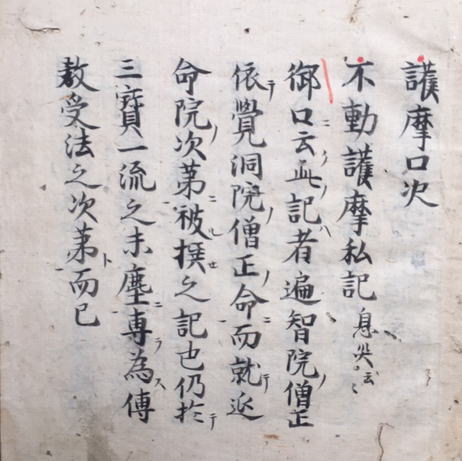 護摩口决
不動護摩私記息災云々
御口云此記者遍智院僧正
依覺洞院僧正命而就延
命院次第被撰之記也仍於
三寶一流之末塵專為傳
教受法之次第而已